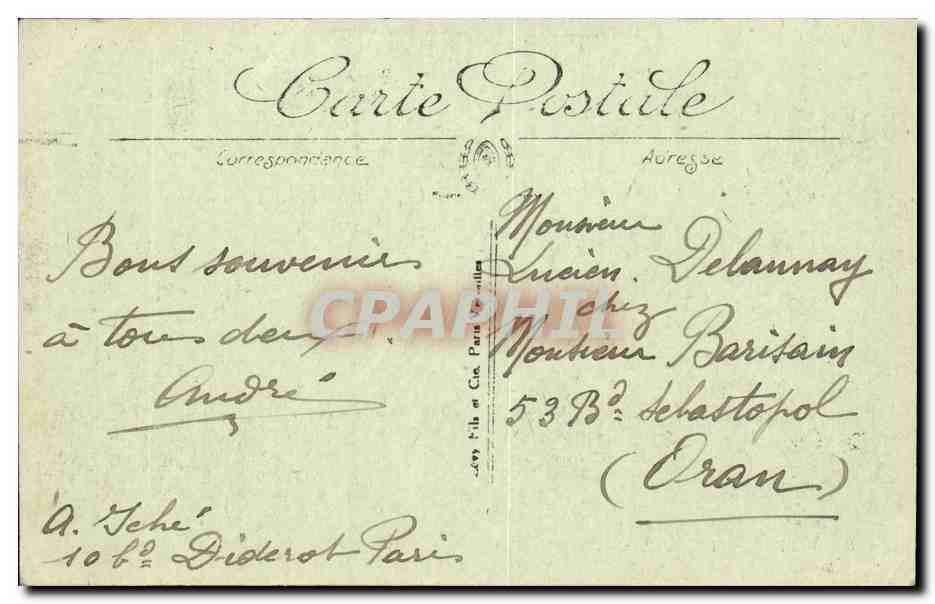 Carte Postale
Correspondance
Adresse
Bons souvenirs
à tous deux.
André
A. Iché
10 bd Diderot Paris
Lévy Fils et Cie, Paris Versailles
Monsieur
Lucien Delaunay
chez
Monsieur Barisain
53 Bd Sébastopol
(Oran)
CPAPHIL